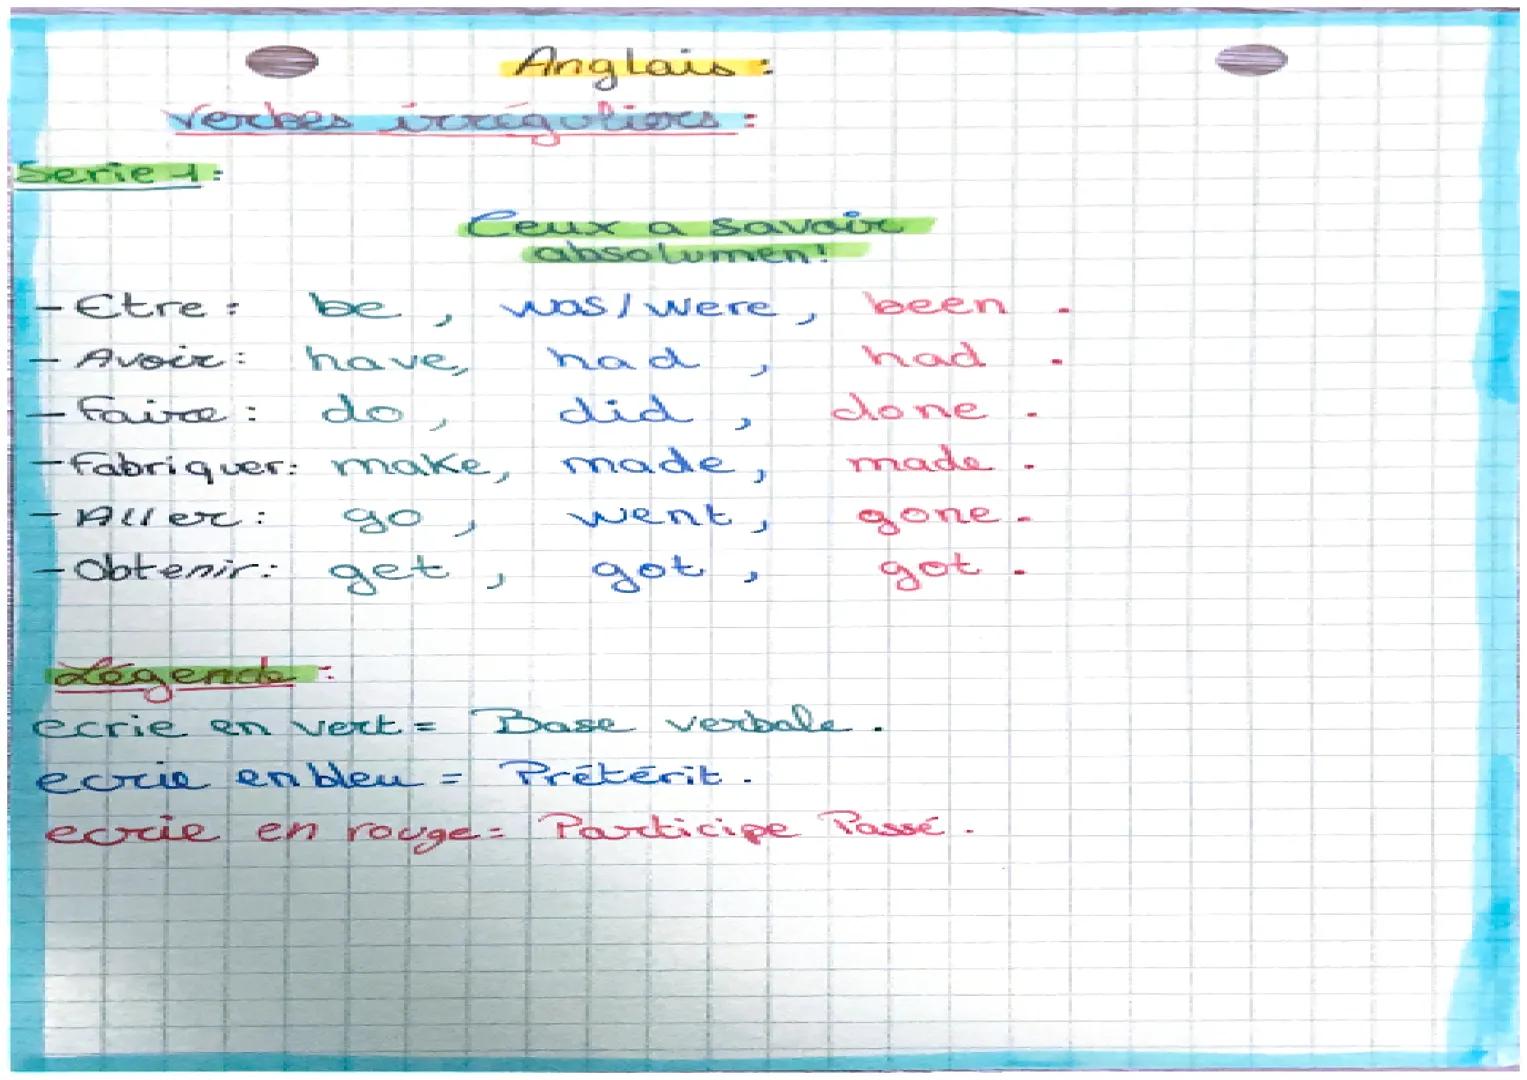 Anglais :
Verbes irréguliers :
Serie 1 :
Ceux a savoir
absolumen!
- Etre : be , was / were , been .
- Avoir : have, had , had .
- Faire : do , did , done .
- Fabriquer : make, made , made .
- Aller : go , went , gone .
- Obtenir : get , got , got .
Légende :
ecrie en vert = Base verbale .
ecrie en bleu = Prétérit .
ecrie en rouge = Participe Passé .